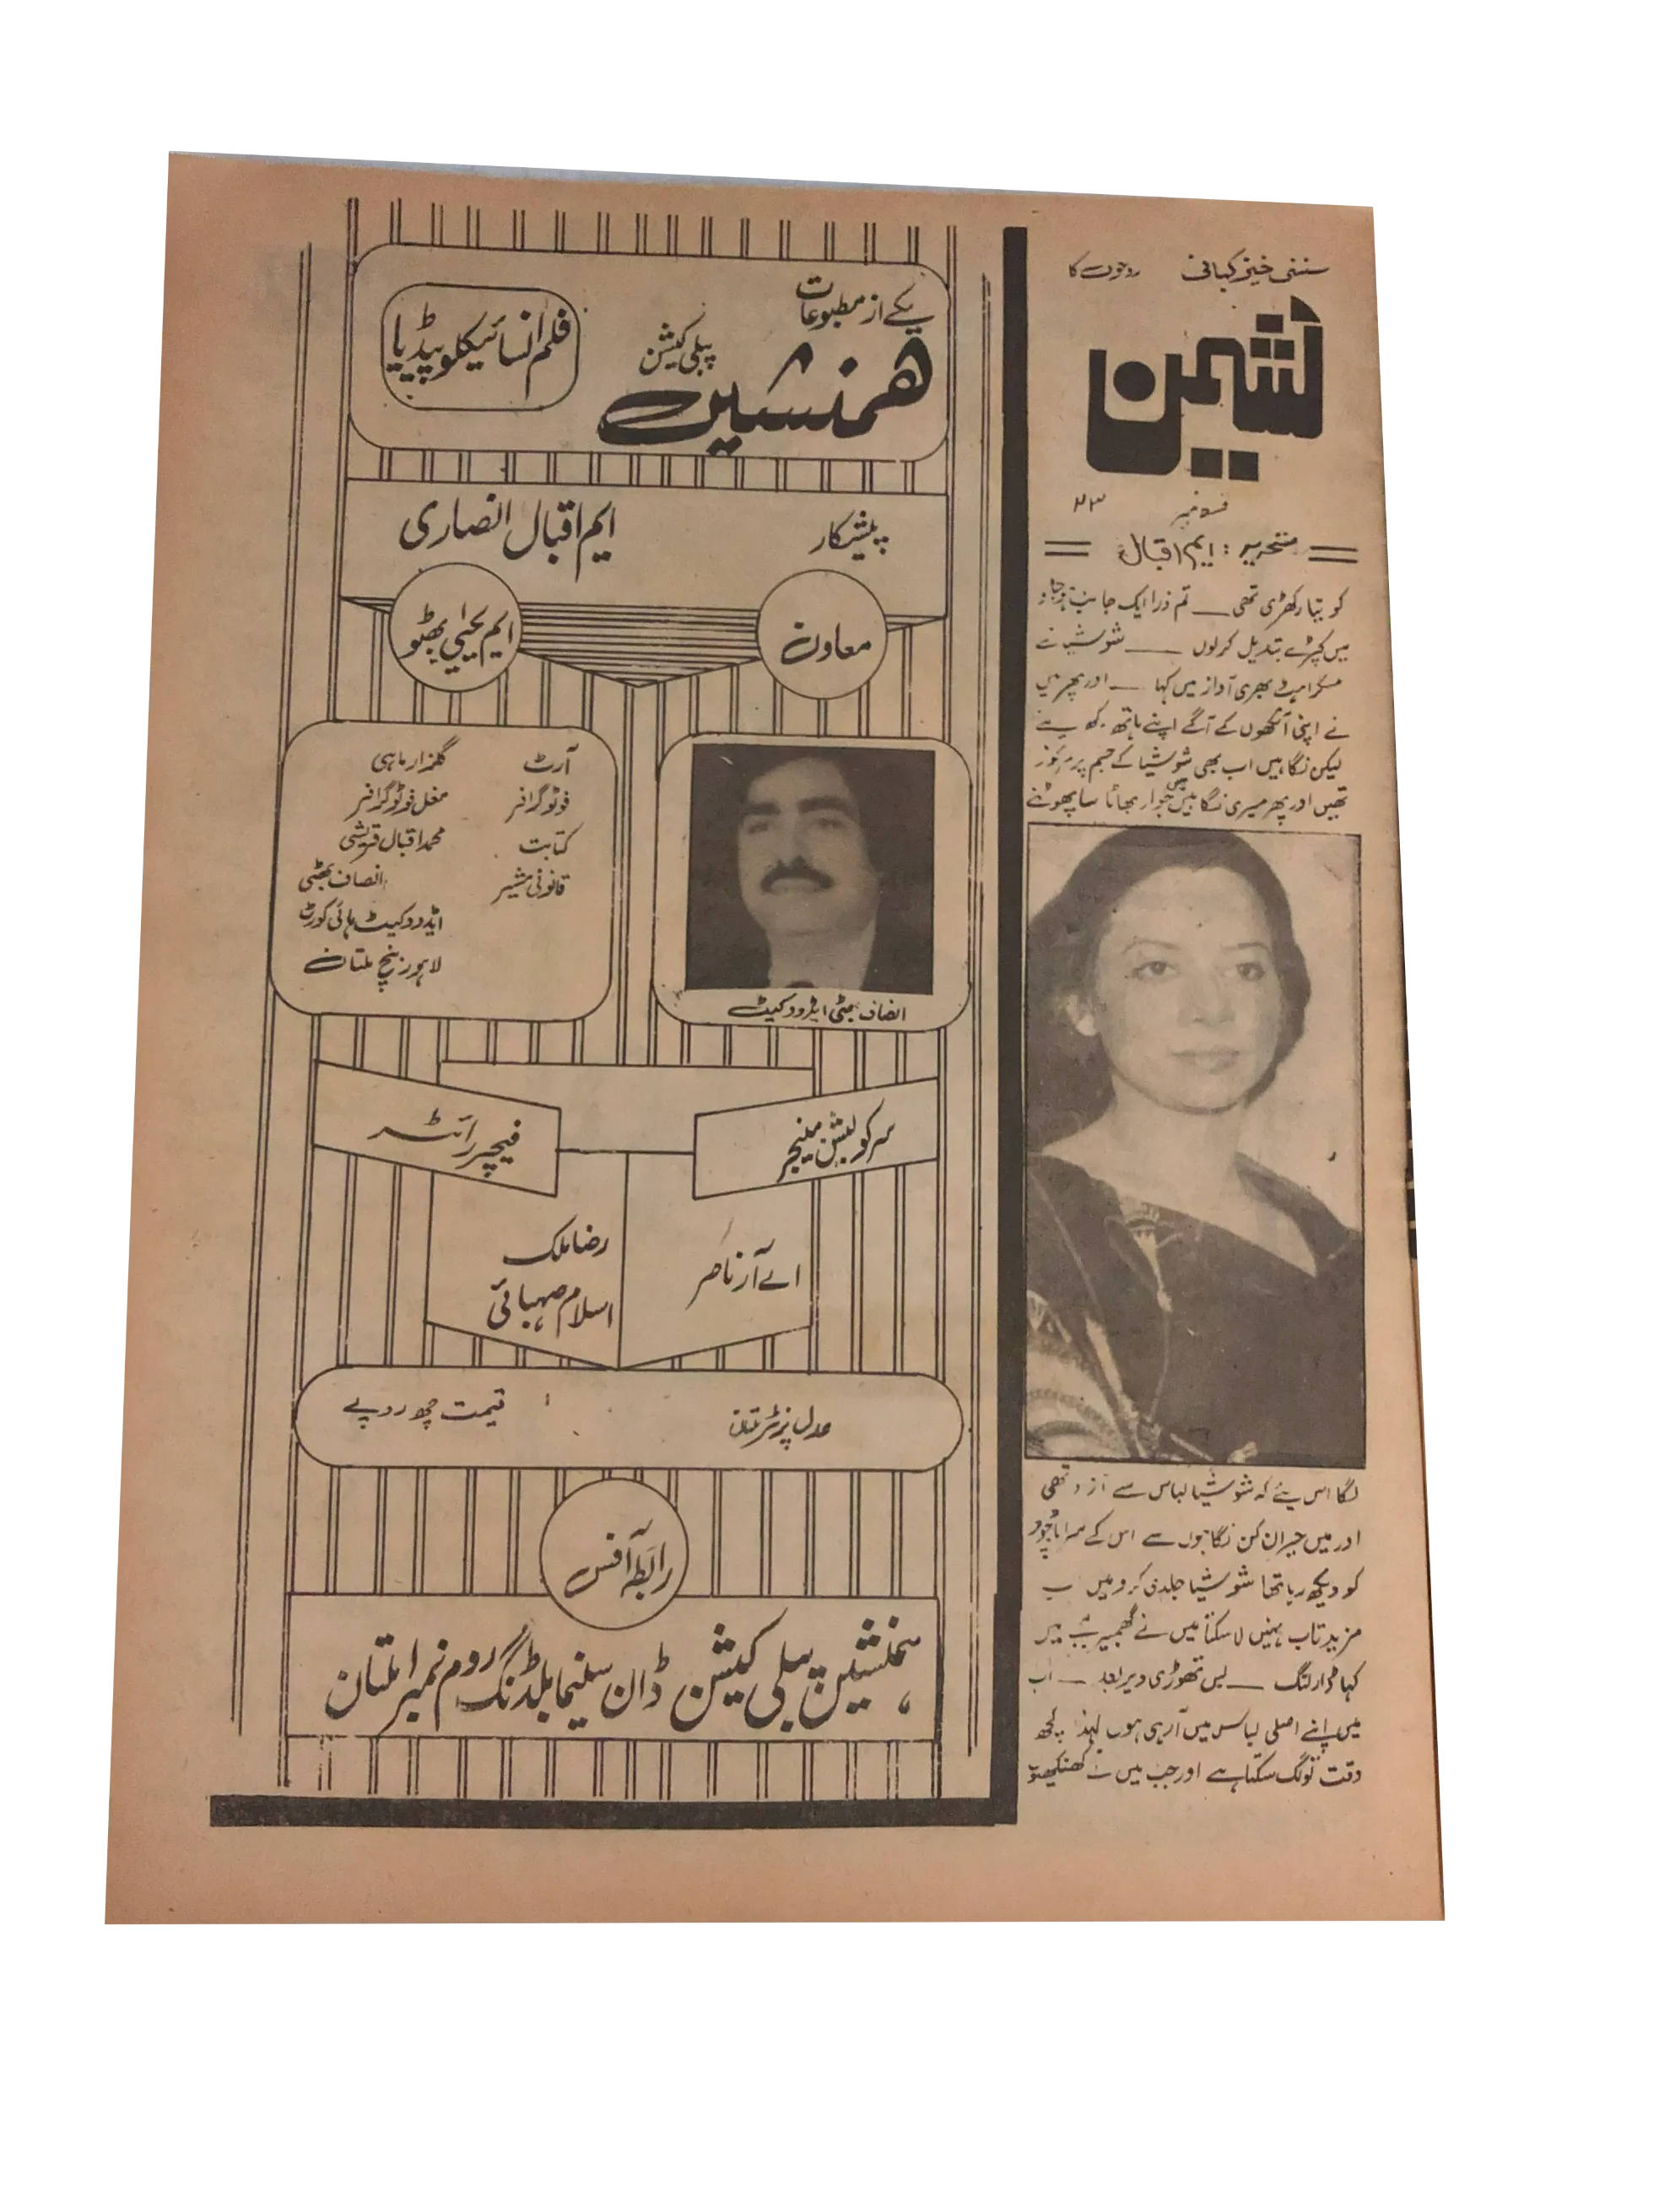 سنسنی خیز کہانی روحوں کا
نشیمن
قسط نمبر ۲۳
تحریر : ایم اقبال
کو تیار کھڑی تھی — تم ذرا ایک جانب ہو جاؤ
میں کپڑے تبدیل کر لوں — شوشیا نے
مسکراہٹ بھری آواز میں کہا — اور پھر میں
نے اپنی آنکھوں کے آگے اپنے ہاتھ رکھ لیے
لیکن نگاہیں اب بھی شوشیا کے جسم پر مرکوز
تھیں اور پھر میری نگاہیں میں جوار بھاٹا سا پھوٹنے
لگا اس لئے کہ شوشیا لباس سے آزاد تھی
اور میں حیران کن نگاہوں سے اس کے سراپا وجود
کو دیکھ رہا تھا شوشیا جلدی کرو میں اب
مزید تاب نہیں لا سکتا میں نے گھمبیر لہجے میں
کہا ڈارلنگ — بس تھوڑی دیر بعد — اب
میں اپنے اصلی لباس میں آ رہی ہوں لہذا کچھ
وقت تو لگ سکتا ہے اور جب میں نے
یکے از مطبوعات
ھمنشین پبلی کیشن
فلم انسائیکلوپیڈیا
پیشکار ایم اقبال انصاری
معاون ایم یحیٰی بھٹو
آرٹ گلزار ماہی
فوٹوگرافر مغل فوٹوگرافر
کتابت محمد اقبال قریشی
قانونی مشیر انصاف بھٹی
ایڈووکیٹ ہائی کورٹ
لاہور بنچ ملتان
انصاف بھٹی ایڈووکیٹ
سرکولیشن منیجر
اے آر ناصر
فیچر رائٹر
رضا ملک
اسلام صہبائی
عدل پرنٹرز ملتان
قیمت چھ روپے
رابطہ آفس
ہمنشین پبلی کیشن ڈان سینما بلڈنگ روم نمبر ۱ ملتان